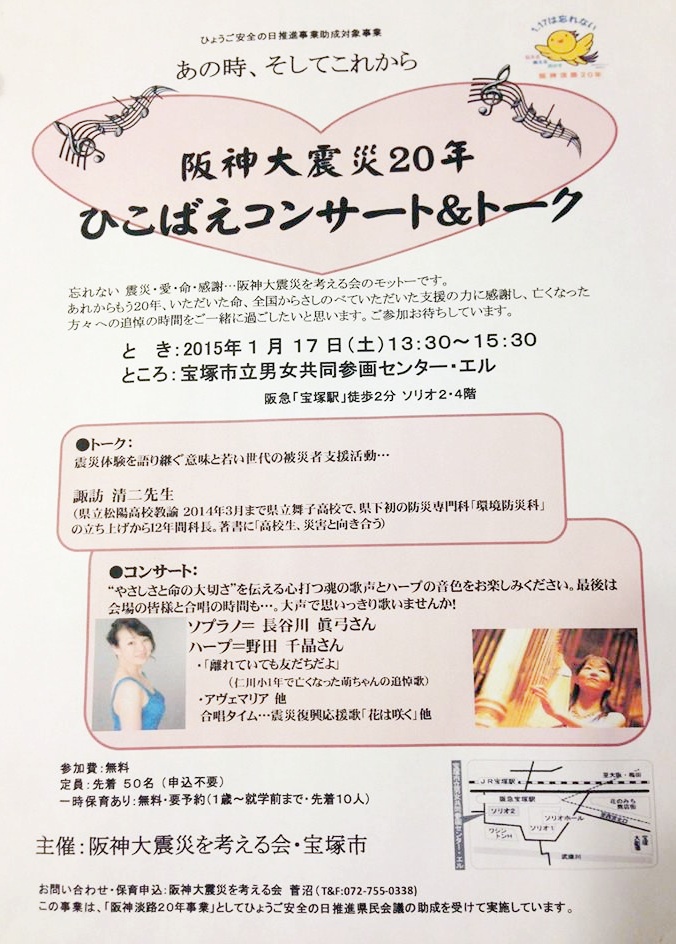 ひょうご安全の日推進事業助成対象事業
1.17は忘れない
阪神淡路20年
あの時、そしてこれから
阪神大震災20年
ひこばえコンサート&トーク
忘れない 震災・愛・命・感謝…阪神大震災を考える会のモットーです。
あれからもう20年、いただいた命、全国からさしのべていただいた支援の力に感謝し、亡くなった
方々への追悼の時間をご一緒に過ごしたいと思います。ご参加お待ちしています。
と き:2015年1月17日(土)13:30~15:30
ところ:宝塚市立男女共同参画センター・エル
阪急「宝塚駅」徒歩2分 ソリオ2・4階
●トーク:
震災体験を語り継ぐ意味と若い世代の被災者支援活動…
諏訪 清二先生
(県立松陽高校教諭 2014年3月まで県立舞子高校で、県下初の防災専門科「環境防災科」
の立ち上げから12年間科長。著書に「高校生、災害と向き合う)
●コンサート:
“やさしさと命の大切さ”を伝える心打つ魂の歌声とハープの音色をお楽しみください。最後は
会場の皆様と合唱の時間も…。大声で思いっきり歌いませんか!
ソプラノ= 長谷川 眞弓さん
ハープ=野田 千晶さん
・「離れていても友だちだよ」
(仁川小1年で亡くなった萌ちゃんの追悼歌)
・アヴェマリア 他
合唱タイム…震災復興応援歌「花は咲く」他
参加費:無料
定員:先着 50名 (申込不要)
一時保育あり:無料・要予約(1歳~就学前まで・先着10人)
宝塚市立男女共同参画センター・エル
JR宝塚駅
至大阪・梅田
阪急宝塚駅
花のみち
ソリオ2
ソリオホール
ソリオ1
ワシン
トンH
武庫川
主催:阪神大震災を考える会・宝塚市
お問い合わせ・保育申込:阪神大震災を考える会 菅沼 (T&F:072-755-0338)
この事業は、「阪神淡路20年事業」としてひょうご安全の日推進県民会議の助成を受けて実施しています。